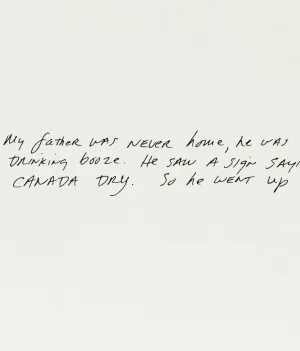 My father was never home, he was
drinking booze. He saw a sign sayi
CANADA DRY. So he went up